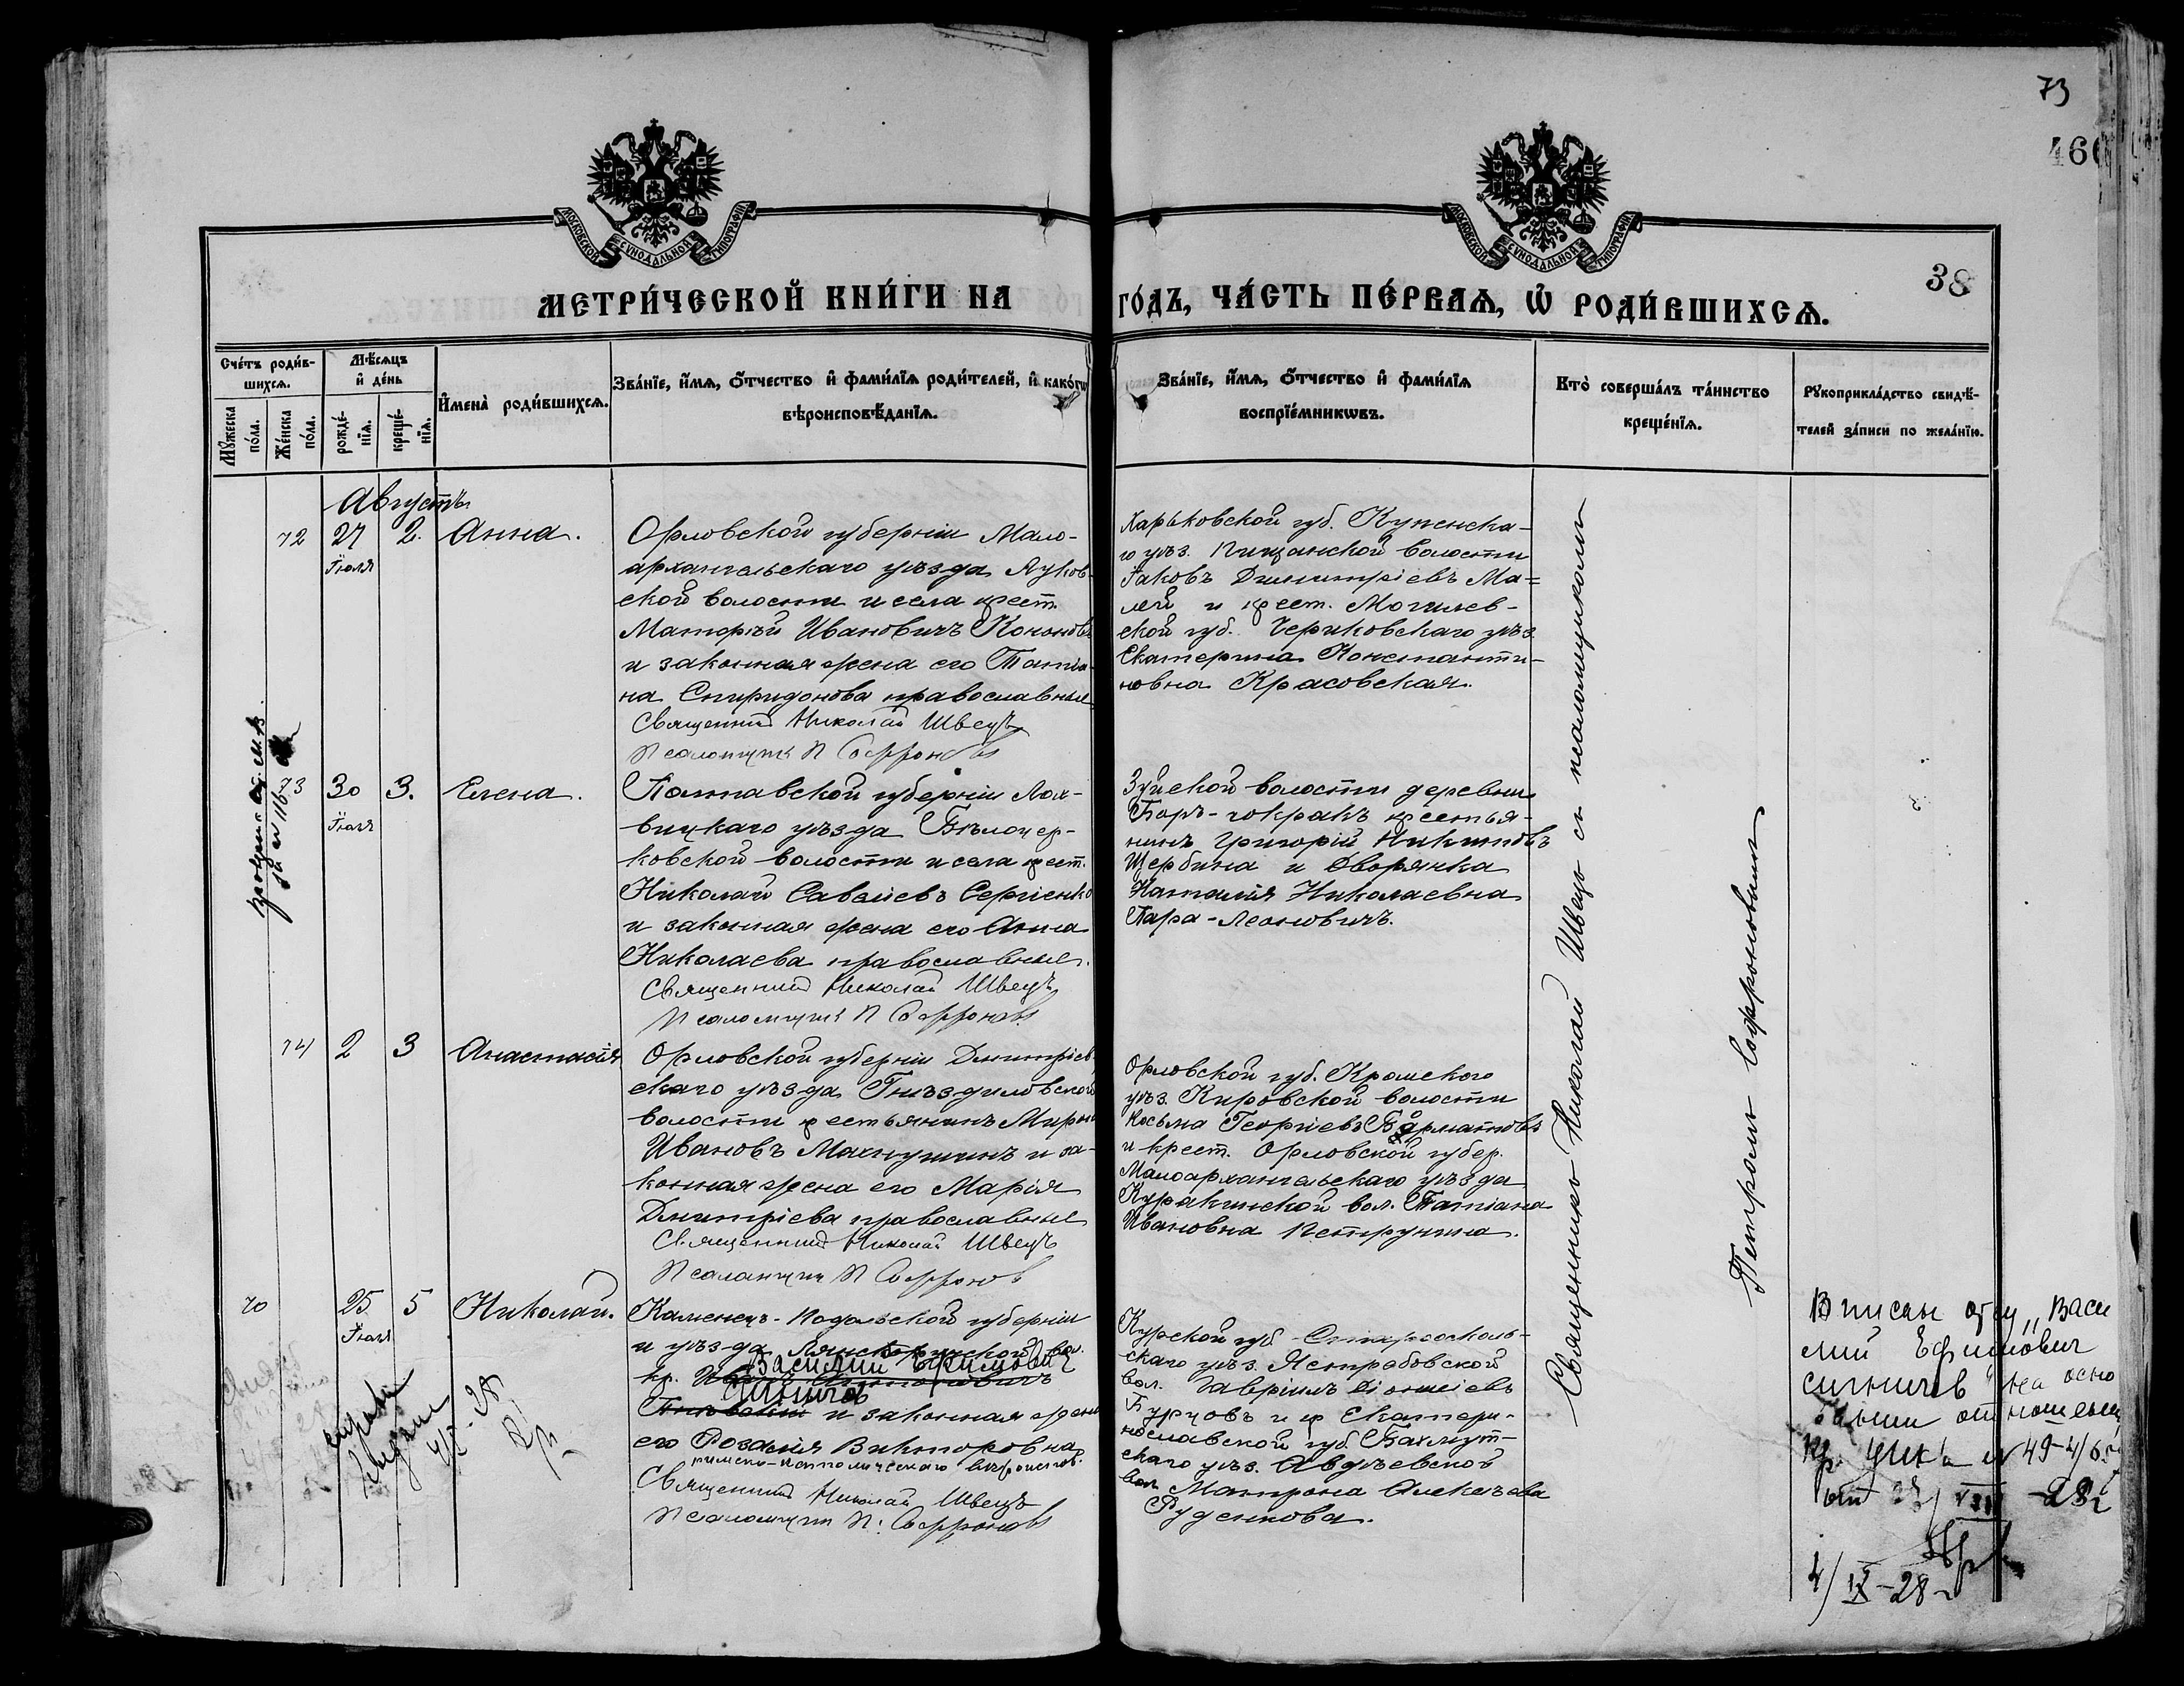 73
466
38
МОСКОВСКОЙ СѴНОДАЛЬНОЙ ТИПОГРАФІИ
МОСКОВСКОЙ СѴНОДАЛЬНОЙ ТИПОГРАФІИ
МЕТРИ́ЧЕСКОЙ КНИ́ГИ НА
ГО́ДЪ, ЧА́СТЬ ПЕ́РВАѦ, Ѿ РОДИ́ВШИХСѦ.
Сче́тъ роди́в-
шихсѧ.
Мѣ́сѧцъ
и҆ де́нь
Мꙋ́жеска
по́ла.
Же́нска
по́ла.
рожде́-
нїѧ.
креще́-
нїѧ.
И҆мена̀ роди́вшихсѧ.
Зва́нїе, и҆́мѧ, ѻ҆́тчество и҆ фами́лїѧ роди́телей, и҆ како́гѡ
вѣроисповѣ́данїѧ.
Зва́нїе, и҆́мѧ, ѻ҆́тчество и҆ фами́лїѧ
воспрїе́мникѡвъ.
Кто̀ соверша́лъ та́инство
креще́нїѧ.
Рꙋкоприкла́дство свидѣ́-
телей за́писи по жела́нїю.
Августъ
72 27 2. Анна.
Іюля
Орловской губерніи Мало-
архангельскаго уѣзда Луков-
ской волости и села крест.
Матфѣй Ивановичъ Кононовъ
и законная жена его Татіа-
на Спиридонова православные
Священникъ Николай Швецъ
Псаломщикъ П Софроновъ
Харьковской губ. Купенска-
го уѣз. Пищанской волости
Іаковъ Димитріевъ Ма=
лей и крест. Могилев-
ской губ. Чериковскаго уѣз.
Екатерина Константи-
новна Красовская.
73 30 3. Елена.
Іюля
Полтавской губерніи Лох-
вицкаго уѣзда Бѣлоцер-
ковской волости и села крест.
Николай Савѣіевъ Сергіенко
и законная жена его Анна
Николаева православные.
Священникъ Николай Швецъ
Псаломщикъ П Софроновъ
Зуйской волости деревни
Боръ-чокракъ крестья-
нинъ Григорій Никитовъ
Щербина и дворянка
Наталія Николаевна
Пара-Леоновичъ.
74 2 3 Анастасія
Орловской губерніи Дмитріев-
скаго уѣзда Гнѣздиловской
волости крестьянинъ Миронъ
Ивановъ Махнушинъ и за-
конная жена его Марія
Дмитріева православные
Священникъ Николай Швецъ
Псаломщикъ П Софроновъ
Орловской губ. Кромского
уѣз. Кировской волости
Косьма Георгіевъ Бормотовъ
и крест. Орловской губер.
Малоархангельскаго уѣзда
Куракинской вол. Татіана
Ивановна Петрунина.
70 25 5 Николай.
Іюля
Каменецъ-Подольской губерніи
и уѣзда Лянскорунской вол.
Василий Ефимович
кр. Антоновичъ
Сигничёв
и законная жена
его Розалія Викторовна
римско-католическаго вѣроисповѣд.
Священникъ Николай Швецъ
Псаломщикъ П. Софроновъ
Курской губ. Старооскольскаго
уѣз. Ястребовской
вол. Гавріилъ Діонисіевъ
Бурцовъ и кр Екатери-
нославской губ. Бахмут-
скаго уѣз. Авдѣевской
вол. Матрона Алексѣева
Руденкова.
Священникъ Николай Швецъ съ псаломщикомъ
Петромъ Софроновымъ
справка
выдана
4/IX-28
Вписан отец „Васи
лий Ефимович
Сигничев" на осно
вании отношения
Кр. ЦИК'а № 49-4/65
от 23/VIII -28 г
4/IX-28 г